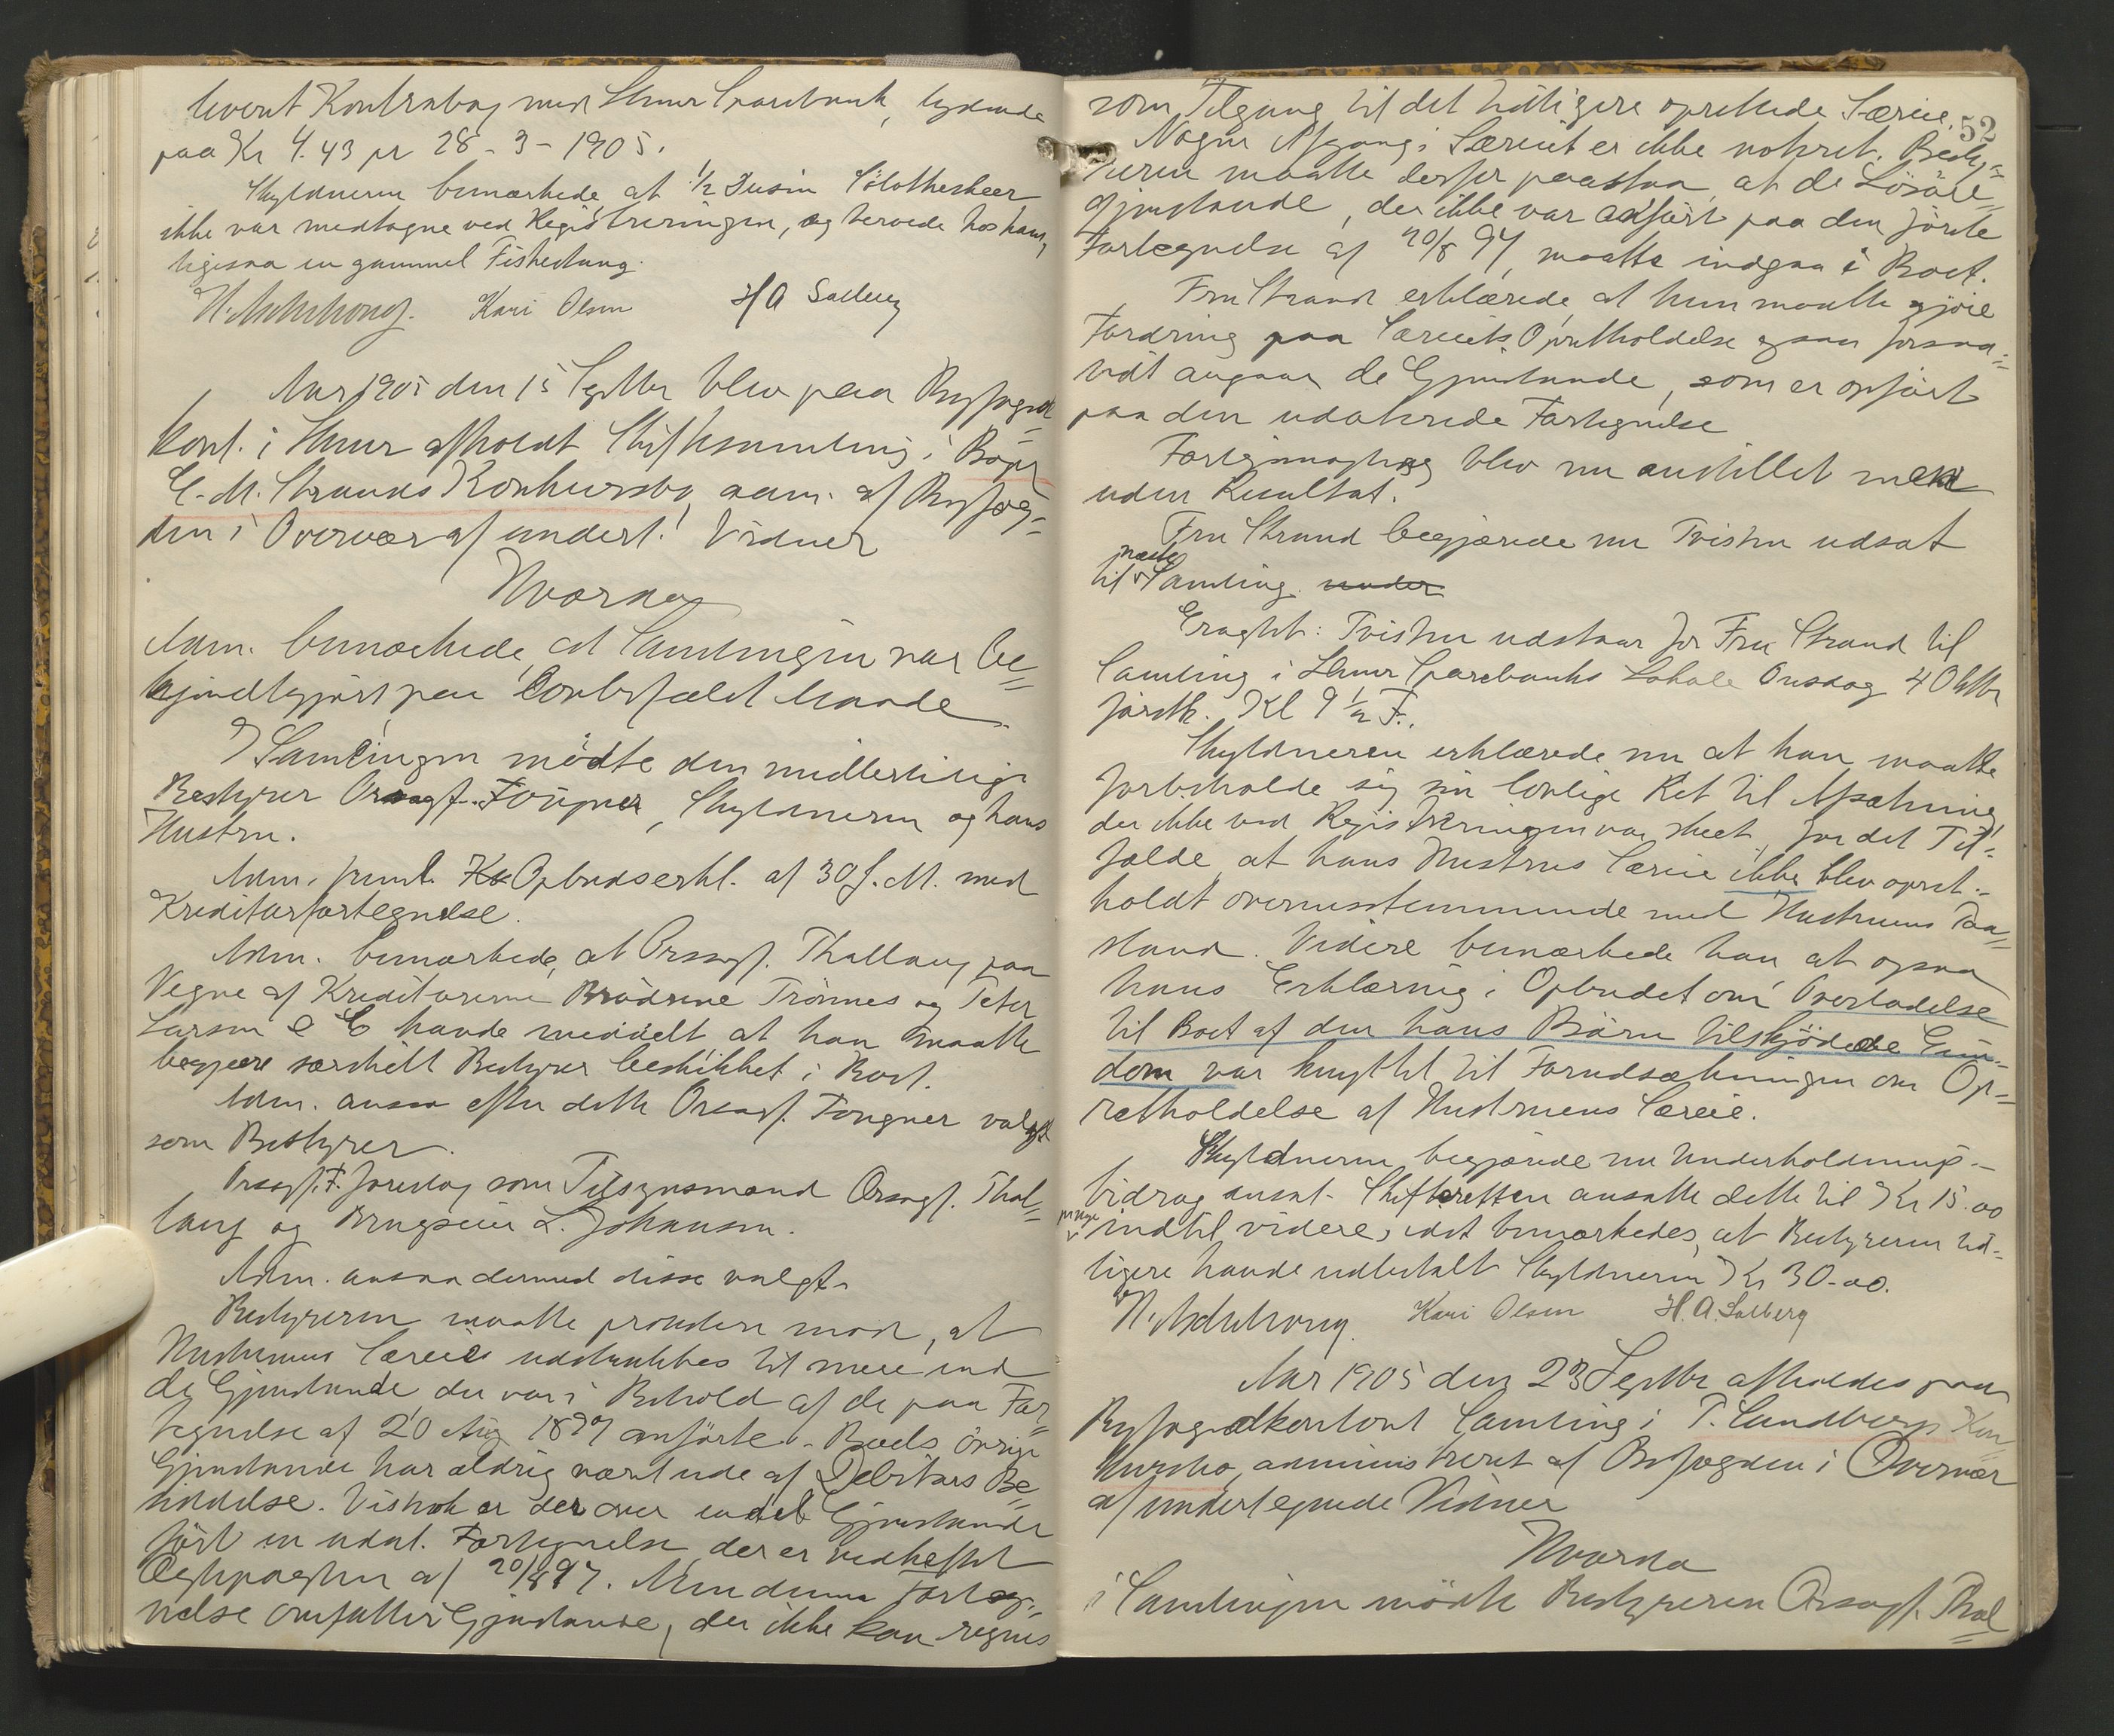 leveret Kontrabog med Hmar Sparebank, lydende
paa Kr 4.43 pr 28-3-1905.
Skyldneren bemærkede, at 1/2 Dusin Sölvtheskeer
ikke var medtagne ved Registreringen, og beroede hos ham,
ligesaa en gammel Fiskestang.
Kari Olsen H A Salberg
Aar 1905 den 15 Septbr blev paa Byfoged=
kont. i Hmar afholdt Skiftesamling i
E. M. Strands Konkursbo, adm. af Byfog=
den i Overvær af undert. Vidner
Hvorda
Adm. bemærkede, at Samlingen var be=
kjendtgjört paa lovbefalet Maade.
I Samlingen mödte den midlertidige
Bestyrer Orsagf. Fougner, Skyldneren og hans
Hustru.
Adm. freml. Opbudserkl. af 30 f. M. med
Kreditorfortegnelse.
Adm. bemærkede, at Orsagf. Thallaug paa
Vegne af Kreditorerne Brödrene Trönnes og Peter
Larsen & Co havde meddelt at han maatte
begjære særskilt Bestyrer beskikket i Boet.
Adm. ansaa efter dette Orsagf. Fougner valgt
som Bestyrer.
Orsagf. F. foreslog som Tilsynsmænd Orsagf. Thal=
laug og L. Johansen.
Adm. ansaa dermed disse valgt.
Bestyreren maatte protestere mod, at
Hustruens Særeie udstrækkes til mere end
de Gjenstande, der var i Behold af de paa For=
tegnelse af 20 Aug 1897 anförte. Boets övrige
Gjenstande har aldrig været ude af Debitors Be=
siddelse. Vistnok er der over endel Gjenstande
fört en udat. Fortegnelse, der er vedheftet
Ægtepagten af 20/8 97. Men denne Forteg=
nelse omfatter Gjenstande, der ikke kan regnes
52
som Tilgang til det tidligere oprettede Særeie.
Nogen Afgang i Særeiet er ikke noteret. Besty=
reren maatte derfor paastaa, at de Lösöre=
gjenstande, der ikke var anfört paa den förste
Fortegnelse af 20/8 97, maatte indgaa i Boet.
Fru Strand erklærede, at hun maatte gjöre
Fordring paa Særeiets Opretholdelse ogsaa forsaa=
vidt angaar de Gjenstande, som er opfört
paa den udaterede Fortegnelse
Forligsmægling blev nu anstillet men
uden Resultat.
Fru Strand begjærede nu Tvisten udsat
til næste Samling.
Eragtet: Tvisten udstaar for Fru Strand til
Samling i Hmar Sparebanks Lokale Onsdag 4 Oktbr
förstk. Kl 9 1/2 F.
Skyldneren erklærede nu at han maatte
forbeholde sig sin lovlige Ret til Afsætning,
der ikke ved Registreringen var skeet, for det Til=
fælde, at hans Hustrus Særeie ikke blev opret=
holdt overensstemmende med Hustruens Paa=
stand. Videre bemærkede han, at ogsaa
hans Erklæring i Opbudet om Overladelse
til Boet af den hans Börn tilskjödede Eien=
dom var knyttet til Forudsætningen om Op=
retholdelse af Hustruens Særeie.
Skyldneren begjærede nu Underholdnings=
bidrag ansat. Skifteretten ansatte dette til Kr 15.00
pr Uge indtil videre, idet bemærkedes, at Bestyreren tid=
ligere havde udbetalt Skyldneren Kr 30-00.
Kari Olsen H. A. Salberg
Aar 1905 den 23 Septbr afholdes paa
Byfogedkontoret Samling i P. Sundbergs Kon
kursbo, administreret af Byfogden i Overvær
af undertegnede Vidner
Hvorda
i Samlingen mödte Bestyreren Orsagf. Thal=